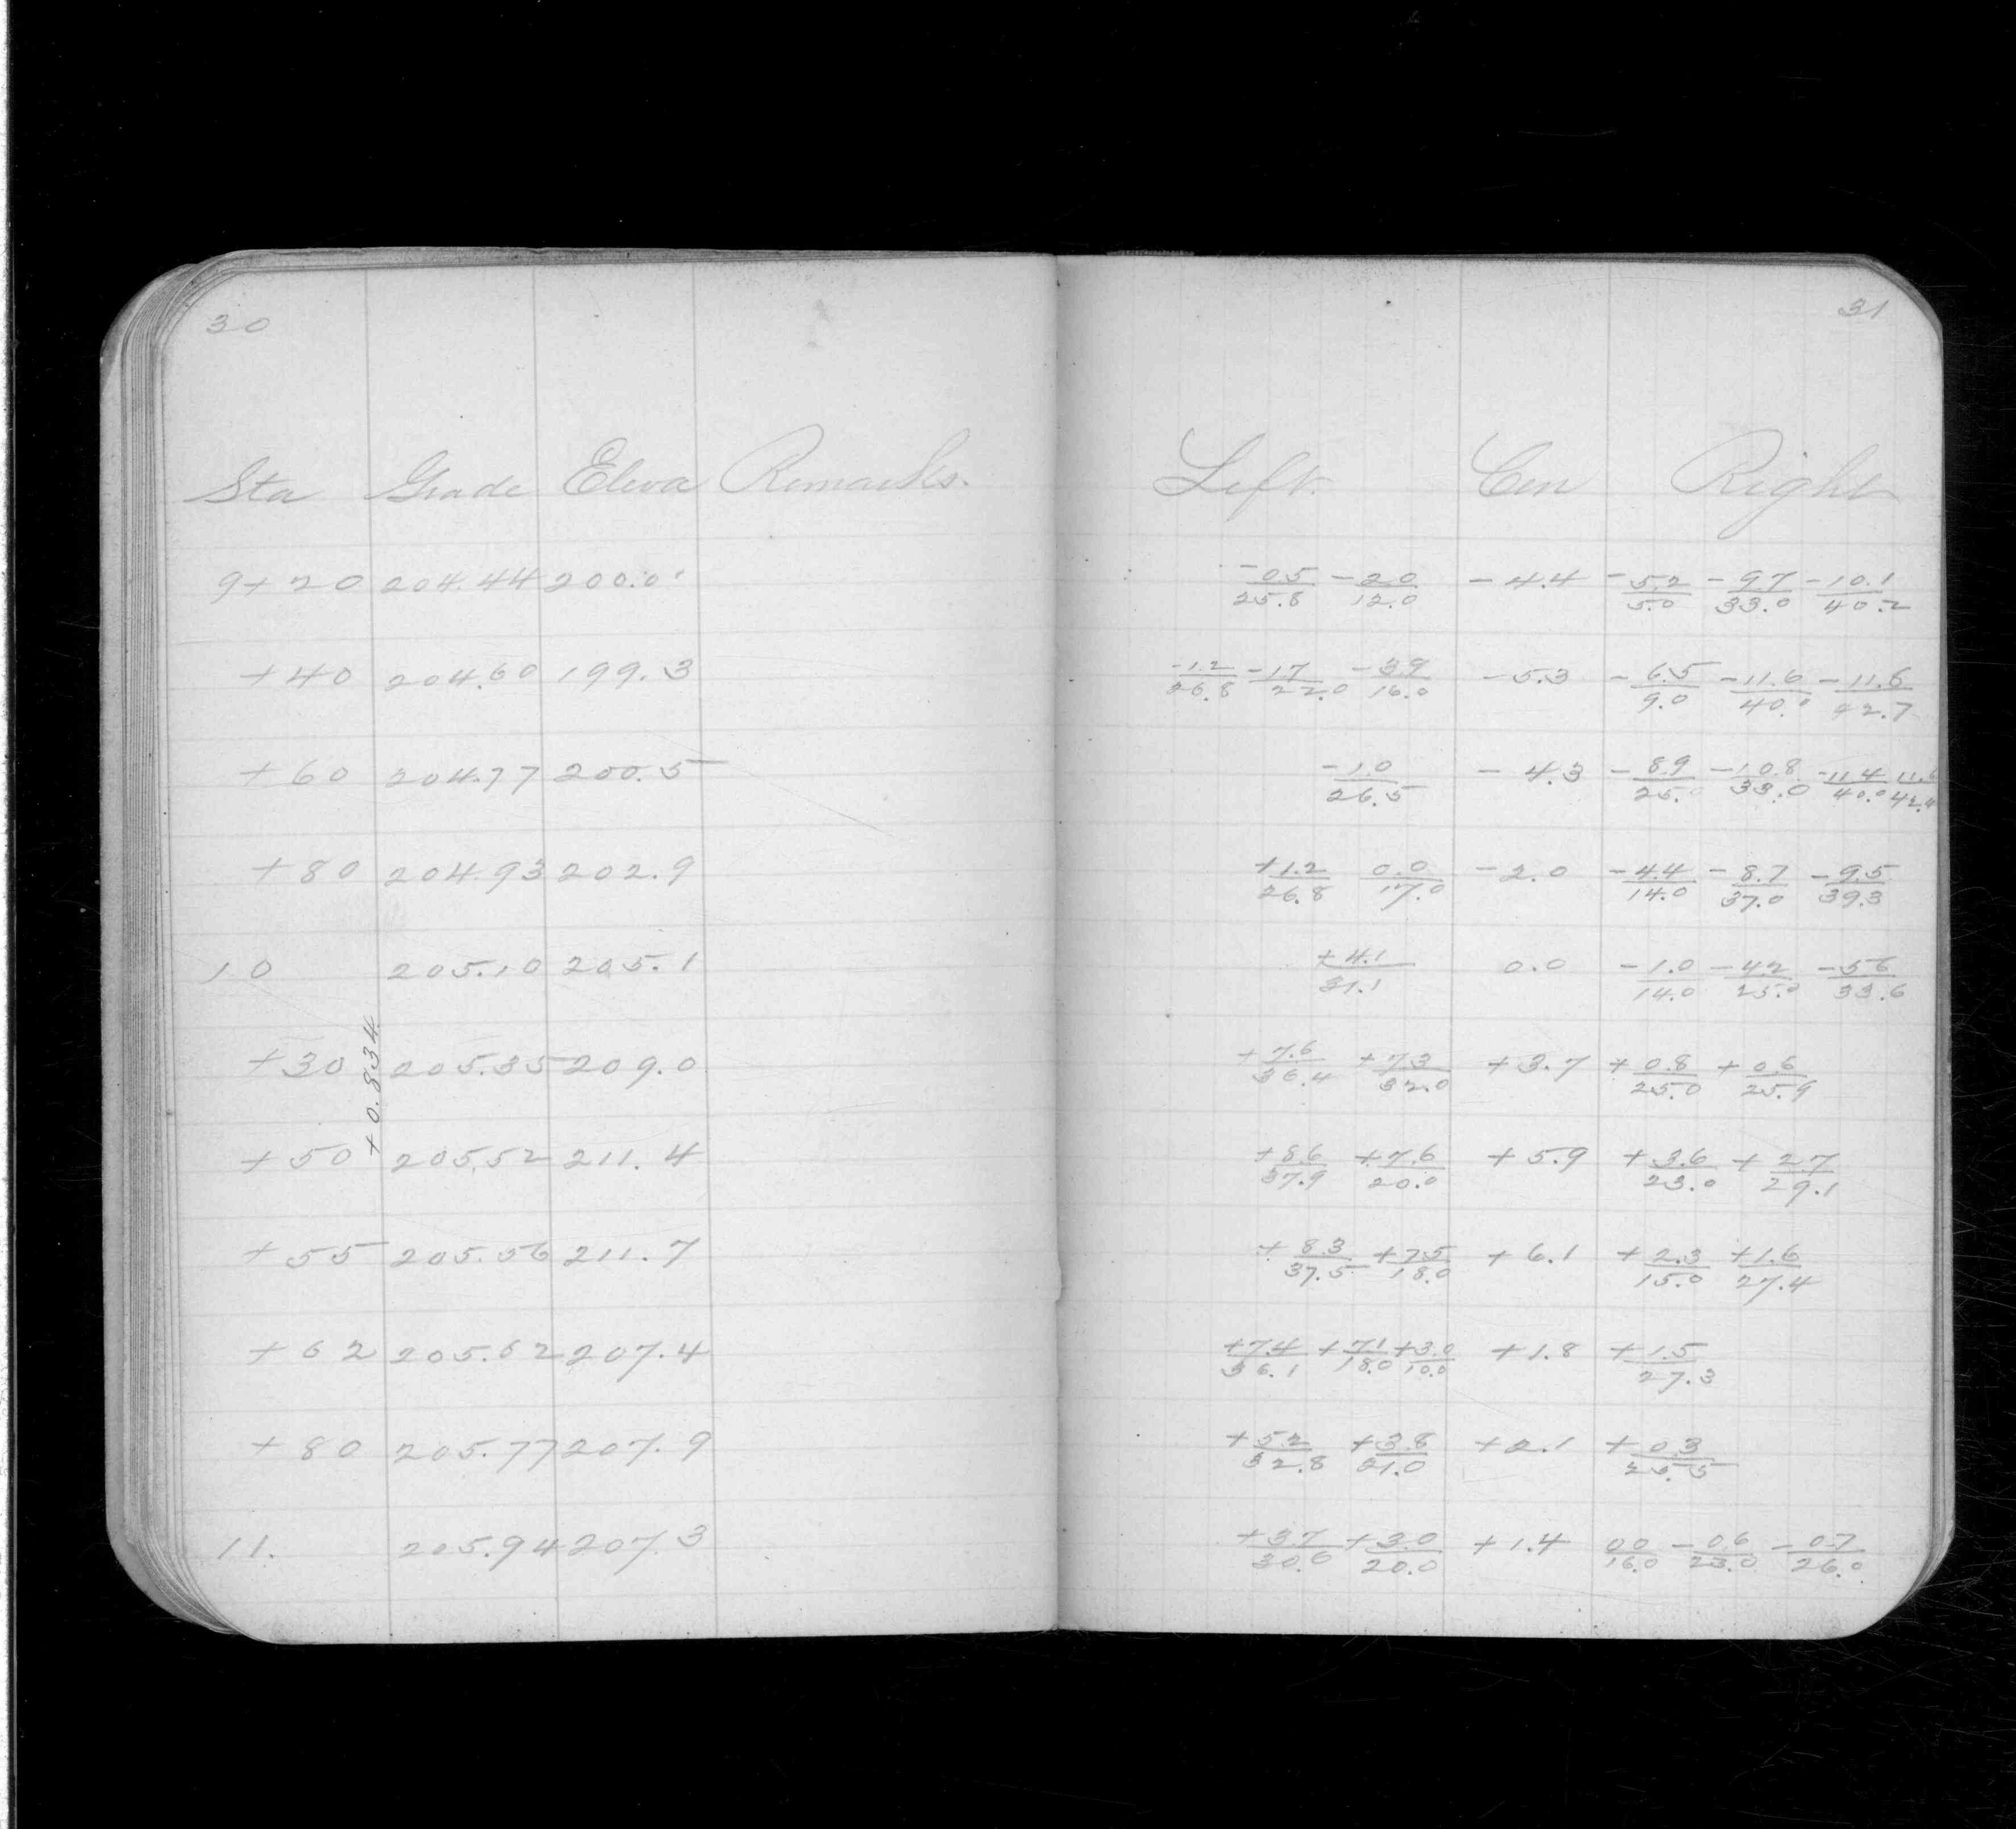 30
31
Sta Grade Eleva Remarks. Left. Cen Right
9+20 204.44 200.0 -0.5/25.8 -2.0/12.0 -4.4 -5.2/5.0 -9.7/33.0 -10.1/40.2
+40 204.60 199.3 -1.2/26.8 -1.7/22.0 -3.9/16.0 -5.3 -6.5/9.0 -11.6/40.0 -11.6/42.7
+60 204.77 200.5 -1.0/26.5 -4.3 -8.9/25.0 -10.8/33.0 -11.4/40.0 11.6/42.4
+80 204.93 202.9 +1.2/26.8 0.0/17.0 -2.0 -4.4/14.0 -8.7/37.0 -9.5/39.3
10 205.10 205.1 +4.1/31.1 0.0 -1.0/14.0 -4.2/25.0 -5.6/33.6
+0.834
+30 205.35 209.0 +7.6/36.4 +7.3/32.0 +3.7 +0.8/25.0 +0.6/25.9
+50 205.52 211.4 +8.6/37.9 +7.6/20.0 +5.9 +3.6/23.0 +2.7/29.1
+55 205.56 211.7 +8.3/37.5 +7.5/18.0 +6.1 +2.3/15.0 +1.6/27.4
+62 205.62 207.4 +7.4/36.1 +7.1/18.0 +3.0/10.0 +1.8 +1.5/27.3
+80 205.77 207.9 +5.2/32.8 +3.8/21.0 +2.1 +0.3/25.5
11. 205.94 207.3 +3.7/30.6 +3.0/20.0 +1.4 0.0/16.0 -0.6/23.0 -0.7/26.0